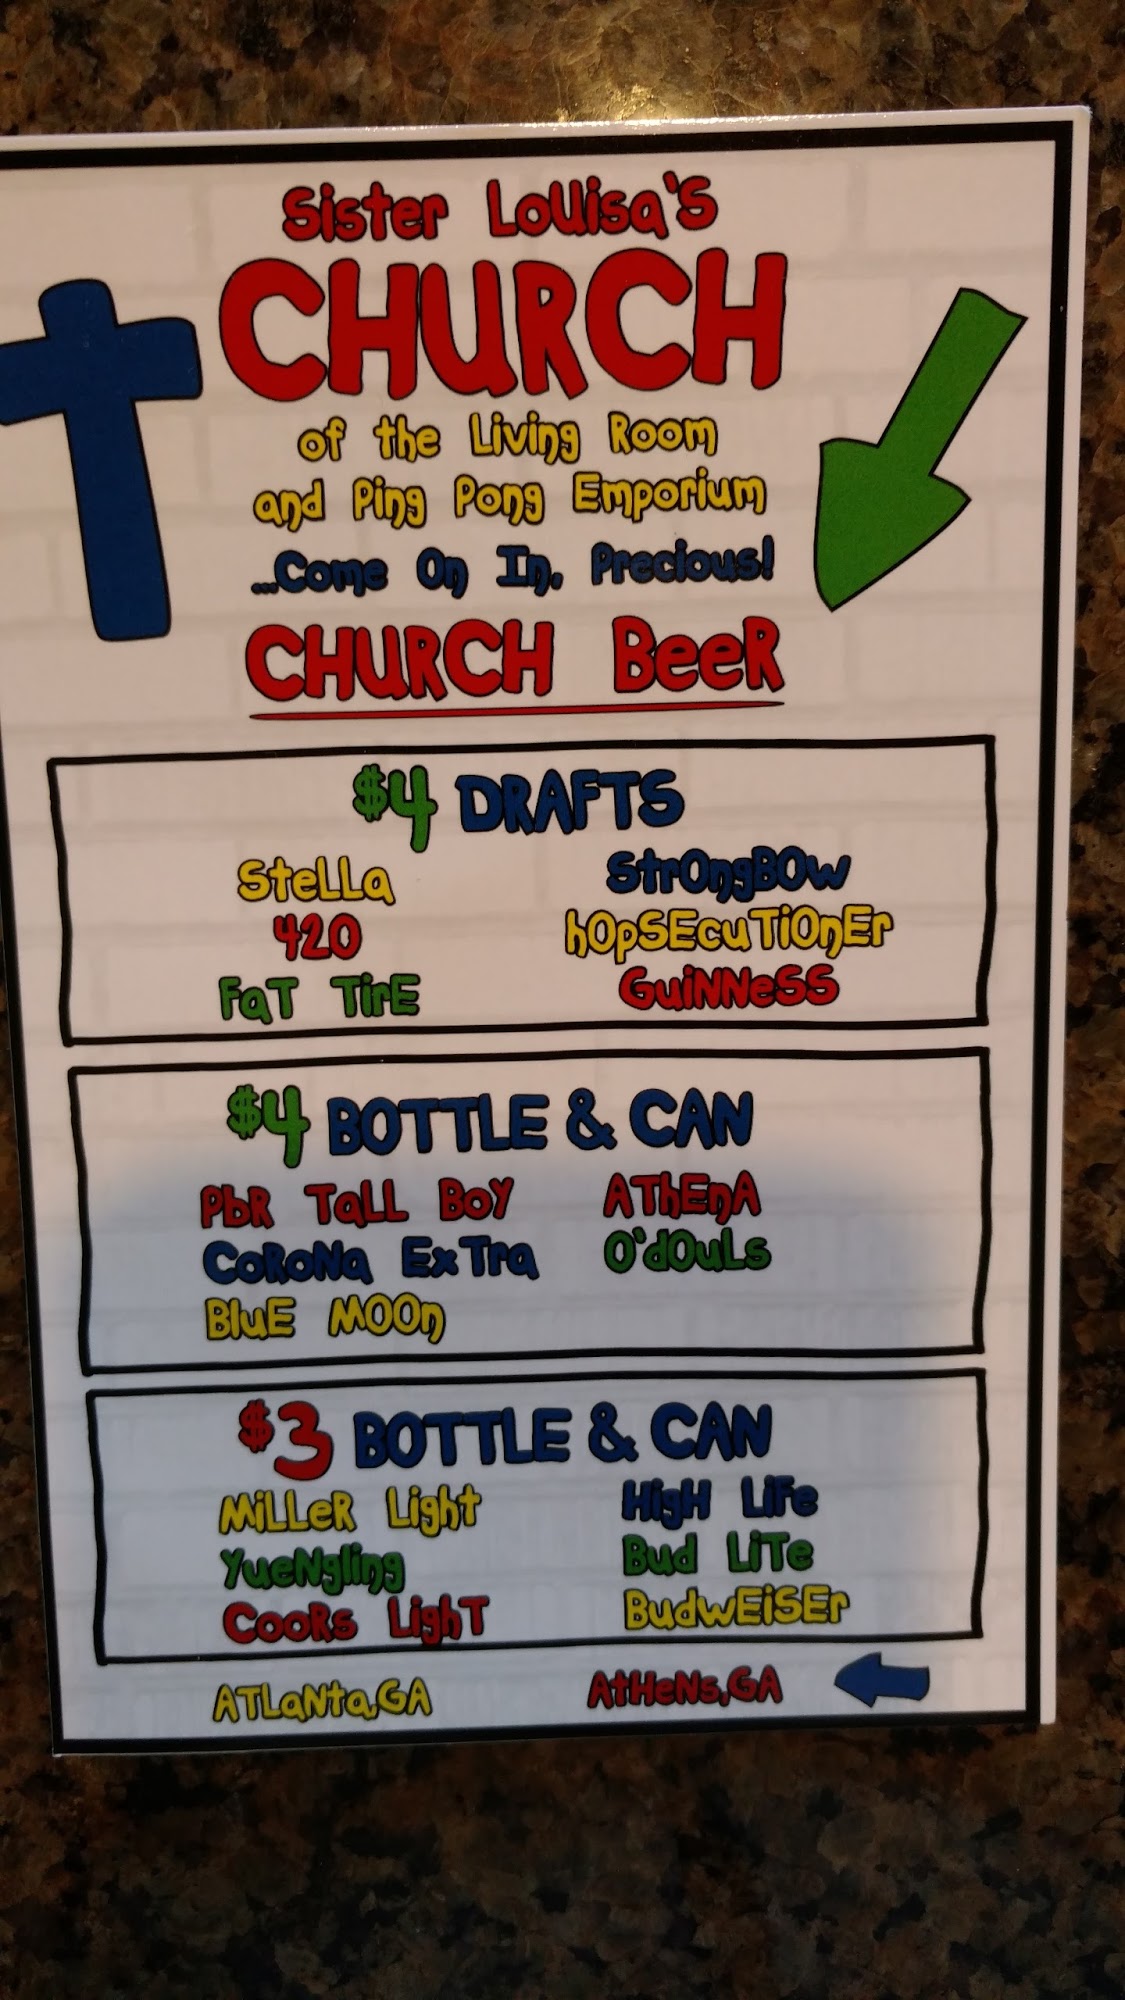 Sister Louisa's
CHURCH
of the Living Room
and Ping Pong Emporium
...Come On In, Precious!
CHURCH BeeR
$4 DRAFTS
SteLLa
420
FaT TirE
StrOngBOw
hOpSEcuTiOnEr
GuiNNeSS
$4 BOTTLE & CAN
PbR TaLL BoY
CoRoNa ExTra
BluE MOOn
AThEnA
O'dOuLs
$3 BOTTLE & CAN
MiLLeR Light
YueNgling
CooRs LighT
HigH LiFe
Bud LiTe
BudwEiSEr
ATLaNta,GA
AtHeNs,GA